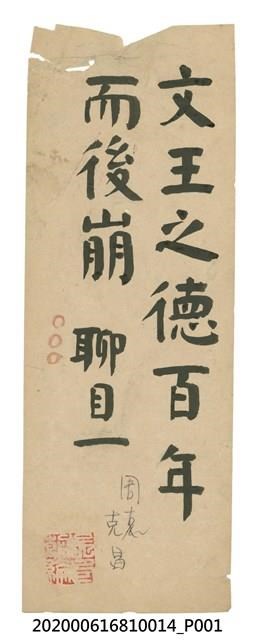 文王之德百年
而後崩 聊目一
周惠
克昌
202000616810014_P001